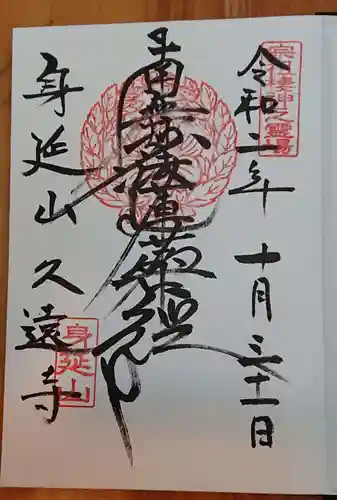 宗祖棲神之霊場
令和二年 十月三十一日
南無妙法蓮華経
身延山久遠寺
身延山